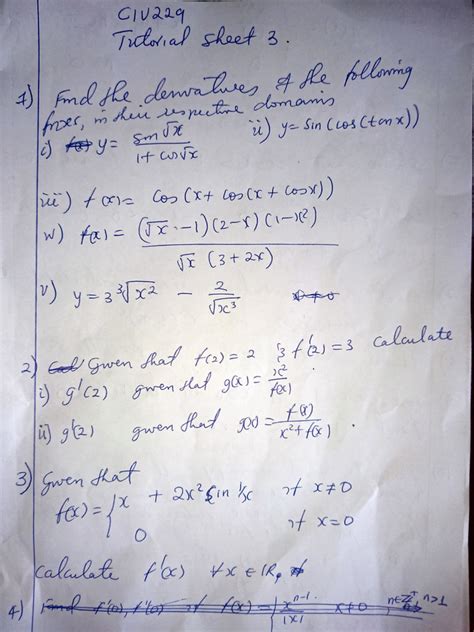 CIV229
Tutorial sheet 3.
1) Find the derivatives of the following
fxns, in their respective domains
i) y = sin√x / 1 + cos√x ii) y = sin(cos(tanx))
iii) f(x) = cos(x + cos(x + cosx))
iv) f(x) = (√x - 1)(2 - x)(1 - x²) / √x (3 + 2x)
v) y = 3 ∛x² - 2/√x³
2) Given that f(2) = 2 & f'(2) = 3 calculate
i) g'(2) given that g(x) = x²/f(x)
ii) g'(2) given that g(x) = f(x) / x² + f(x) .
3) Given that
f(x) = { x + 2x² sin 1/x if x ≠ 0
0 if x = 0
calculate f'(x) ∀ x ∈ IR,
4) Find f'(0), f'(0) if f(x) = { x^{n-1} / |x| x ≠ 0, n ∈ Z⁺, n > 1